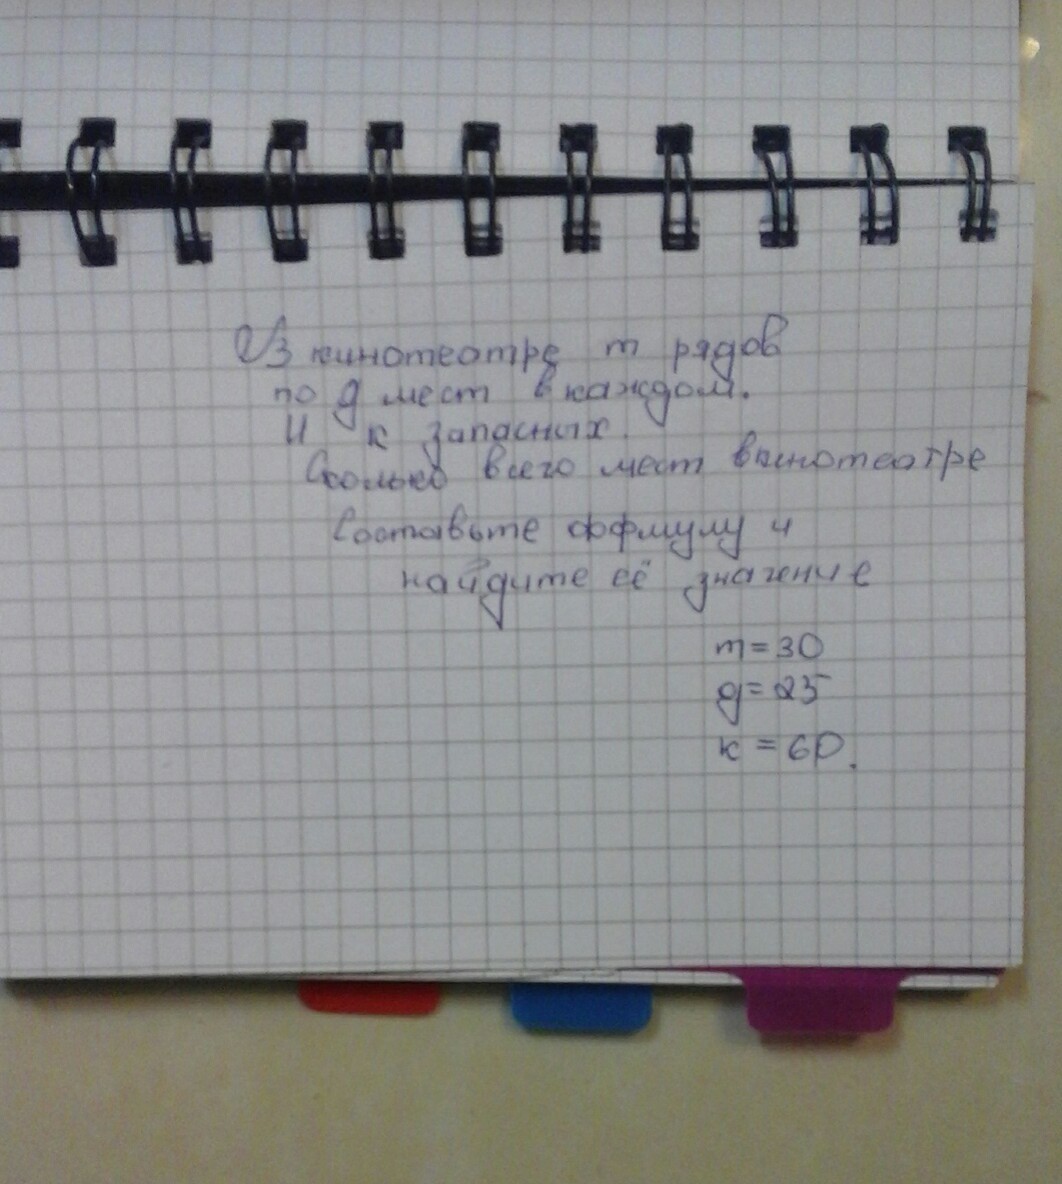 Из кинотеатре m рядов
по g мест в каждом.
И к запасных.
Сколько всего мест в кинотеатре
Составьте формулу и
найдите её значение
m = 30
g = 25
к = 60.